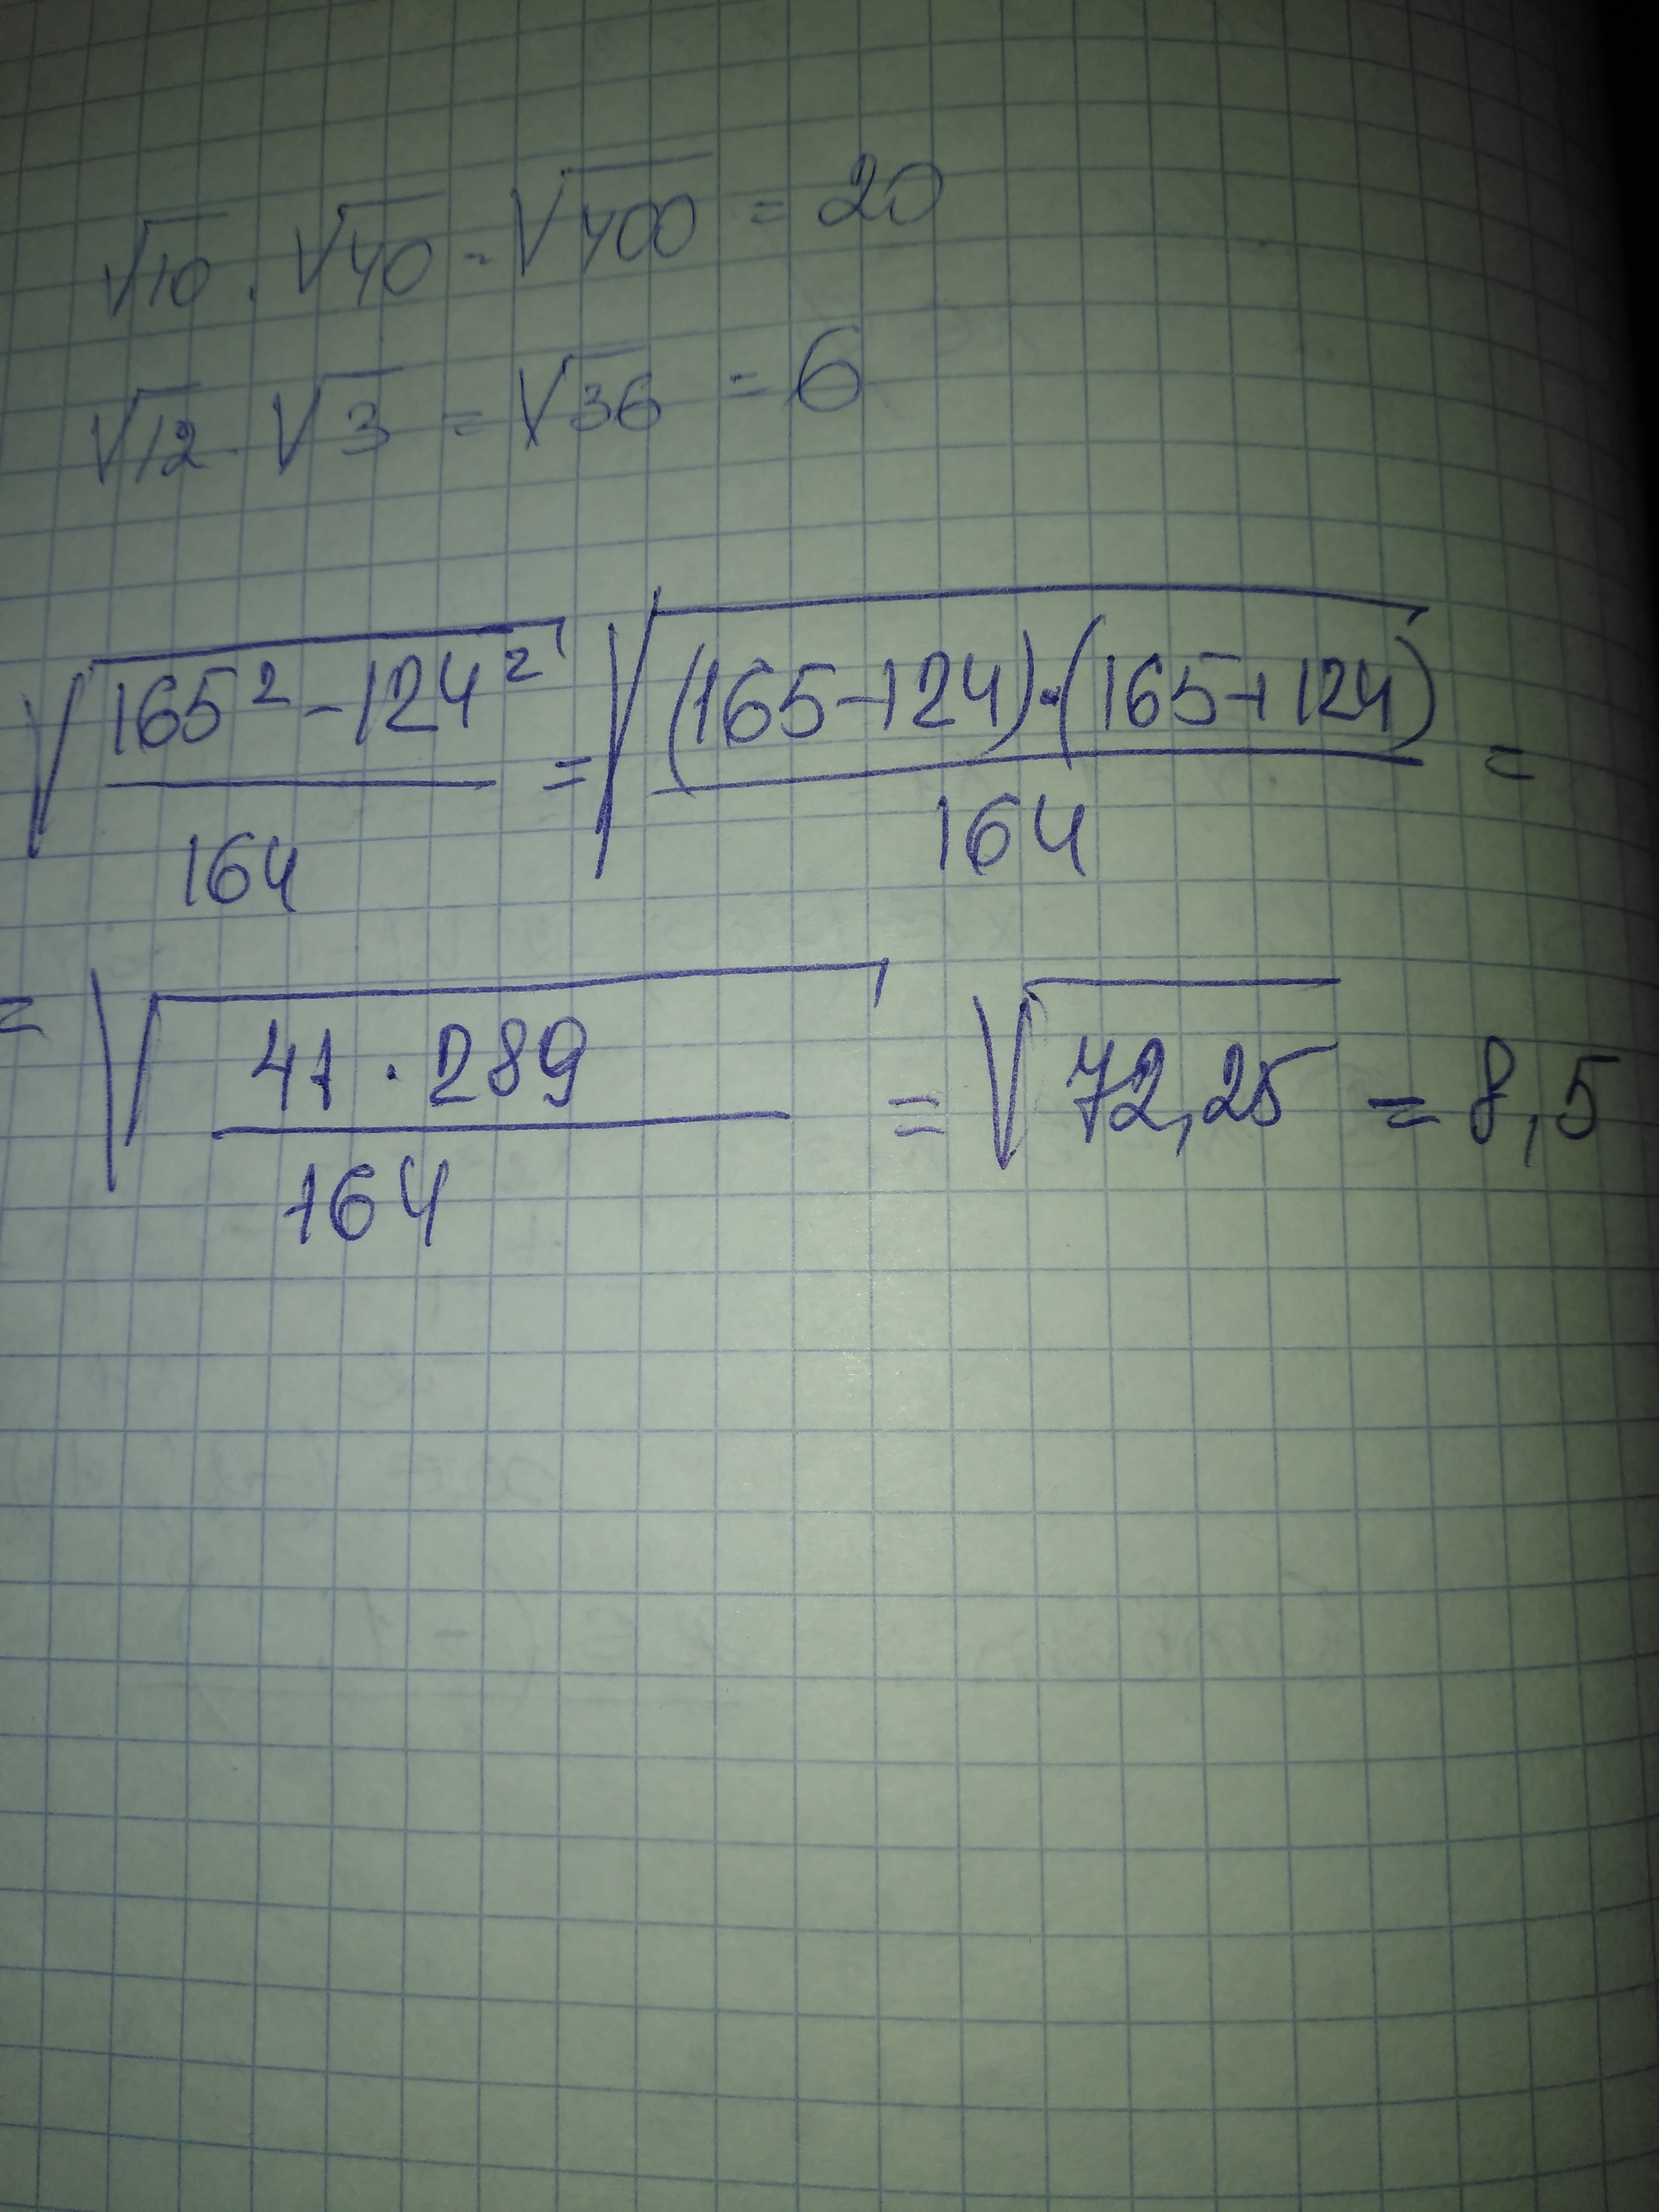 √10 · √40 = √400 = 20
√12 · √3 = √36 = 6
√((165² - 124²)/164) = √(((165-124)·(165+124))/164) =
= √((41 · 289)/164) = √72,25 = 8,5